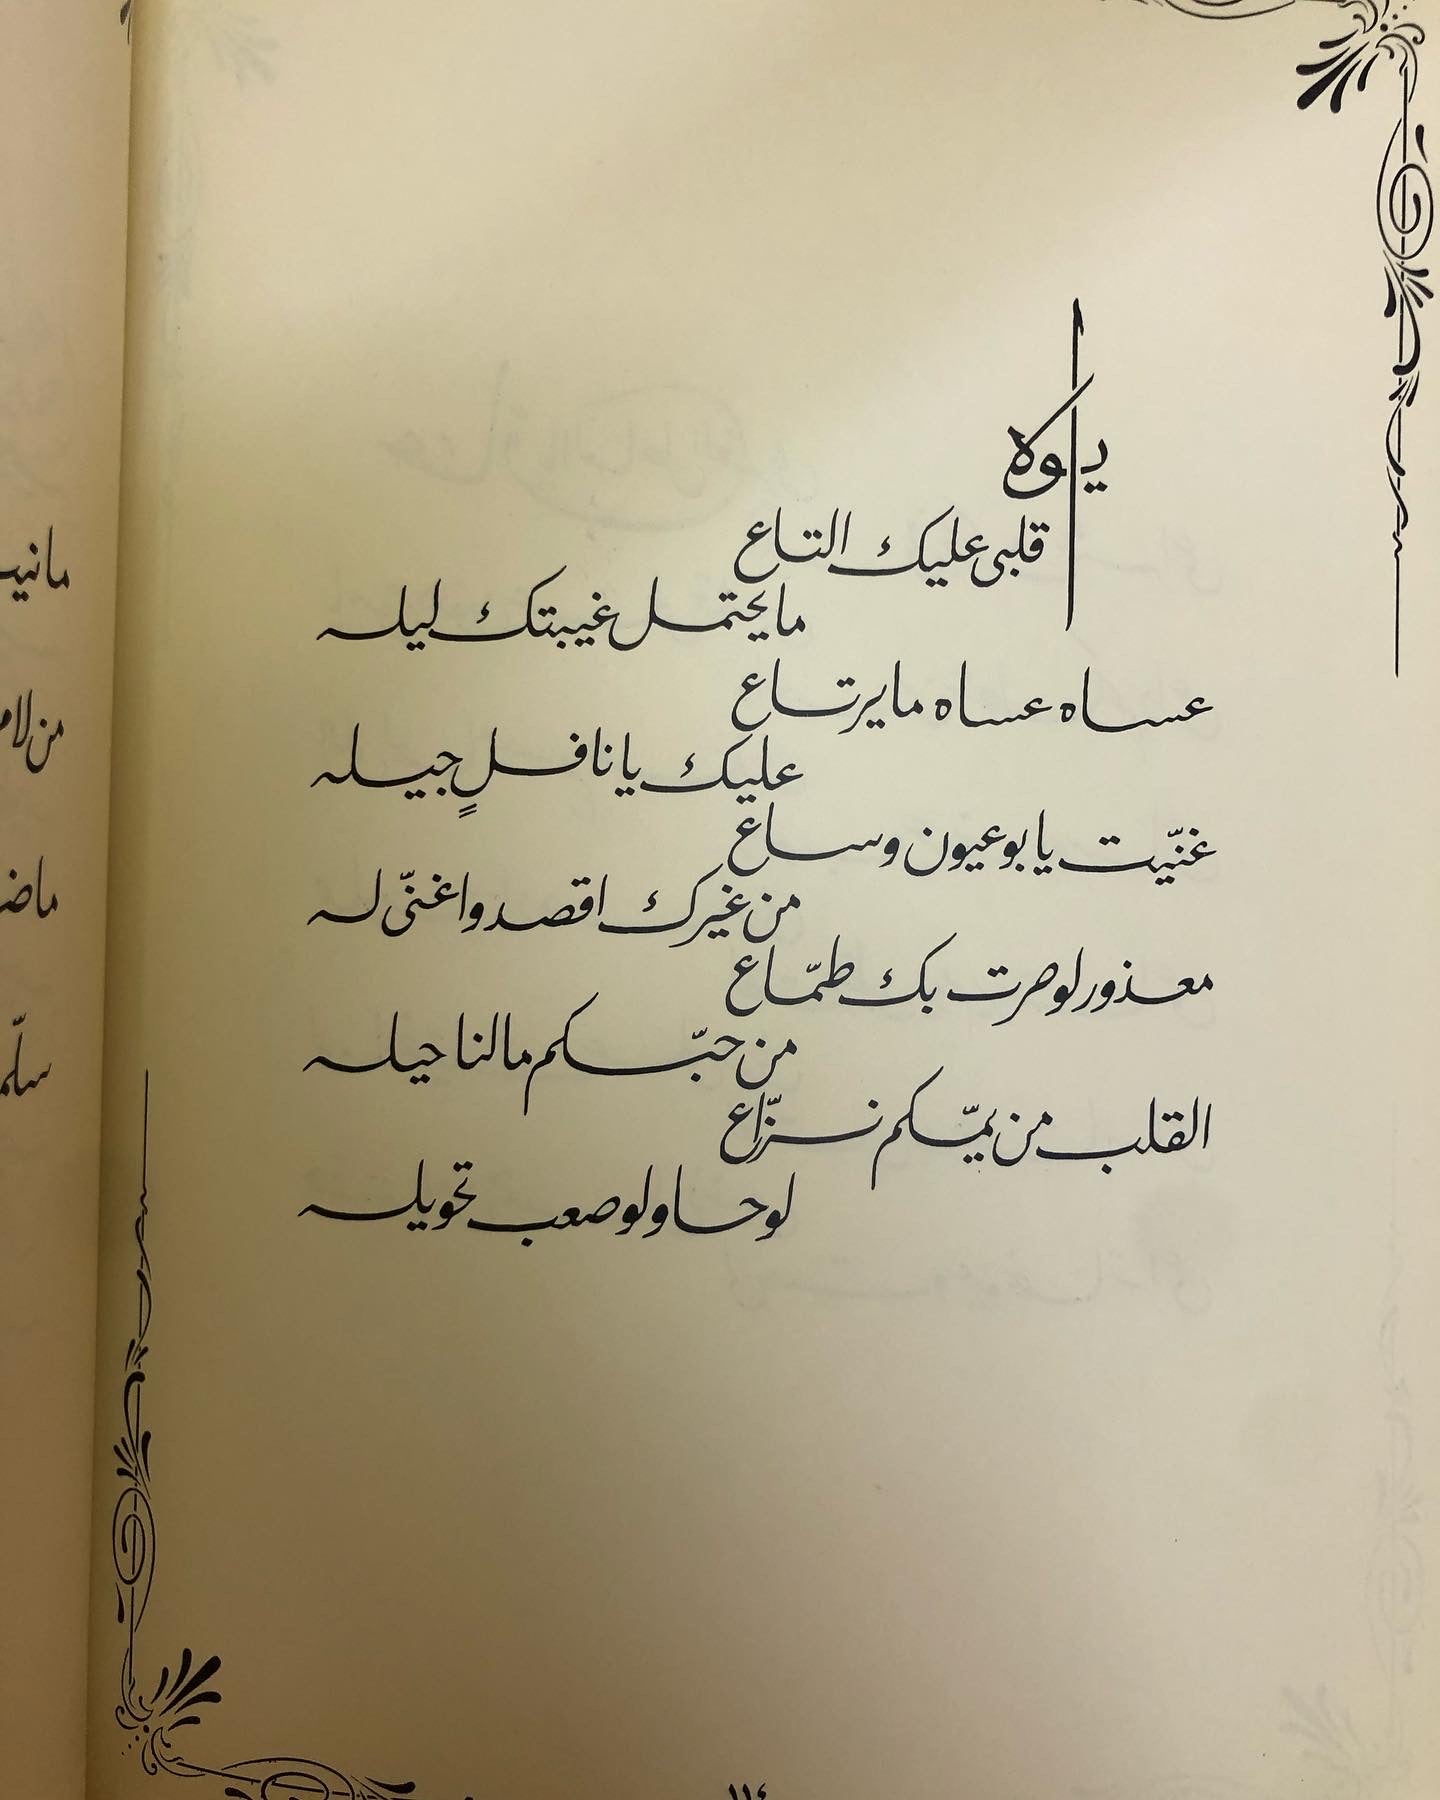 ياوه
قلبي عليك التاع
ما يحتمل غيبتك ليله
عساه عساه ما يرتاع
عليك يا نافلٍ جيله
غنّيت يابو عيون وساع
من غيرك اقصد واغنّي له
معذور لو صرت بك طمّاع
من حبّكم مالنا حيله
القلب من يمّكم نزّاع
لو حاولو صعب تحويله
١١٤
مانيب
ماض
سلّم